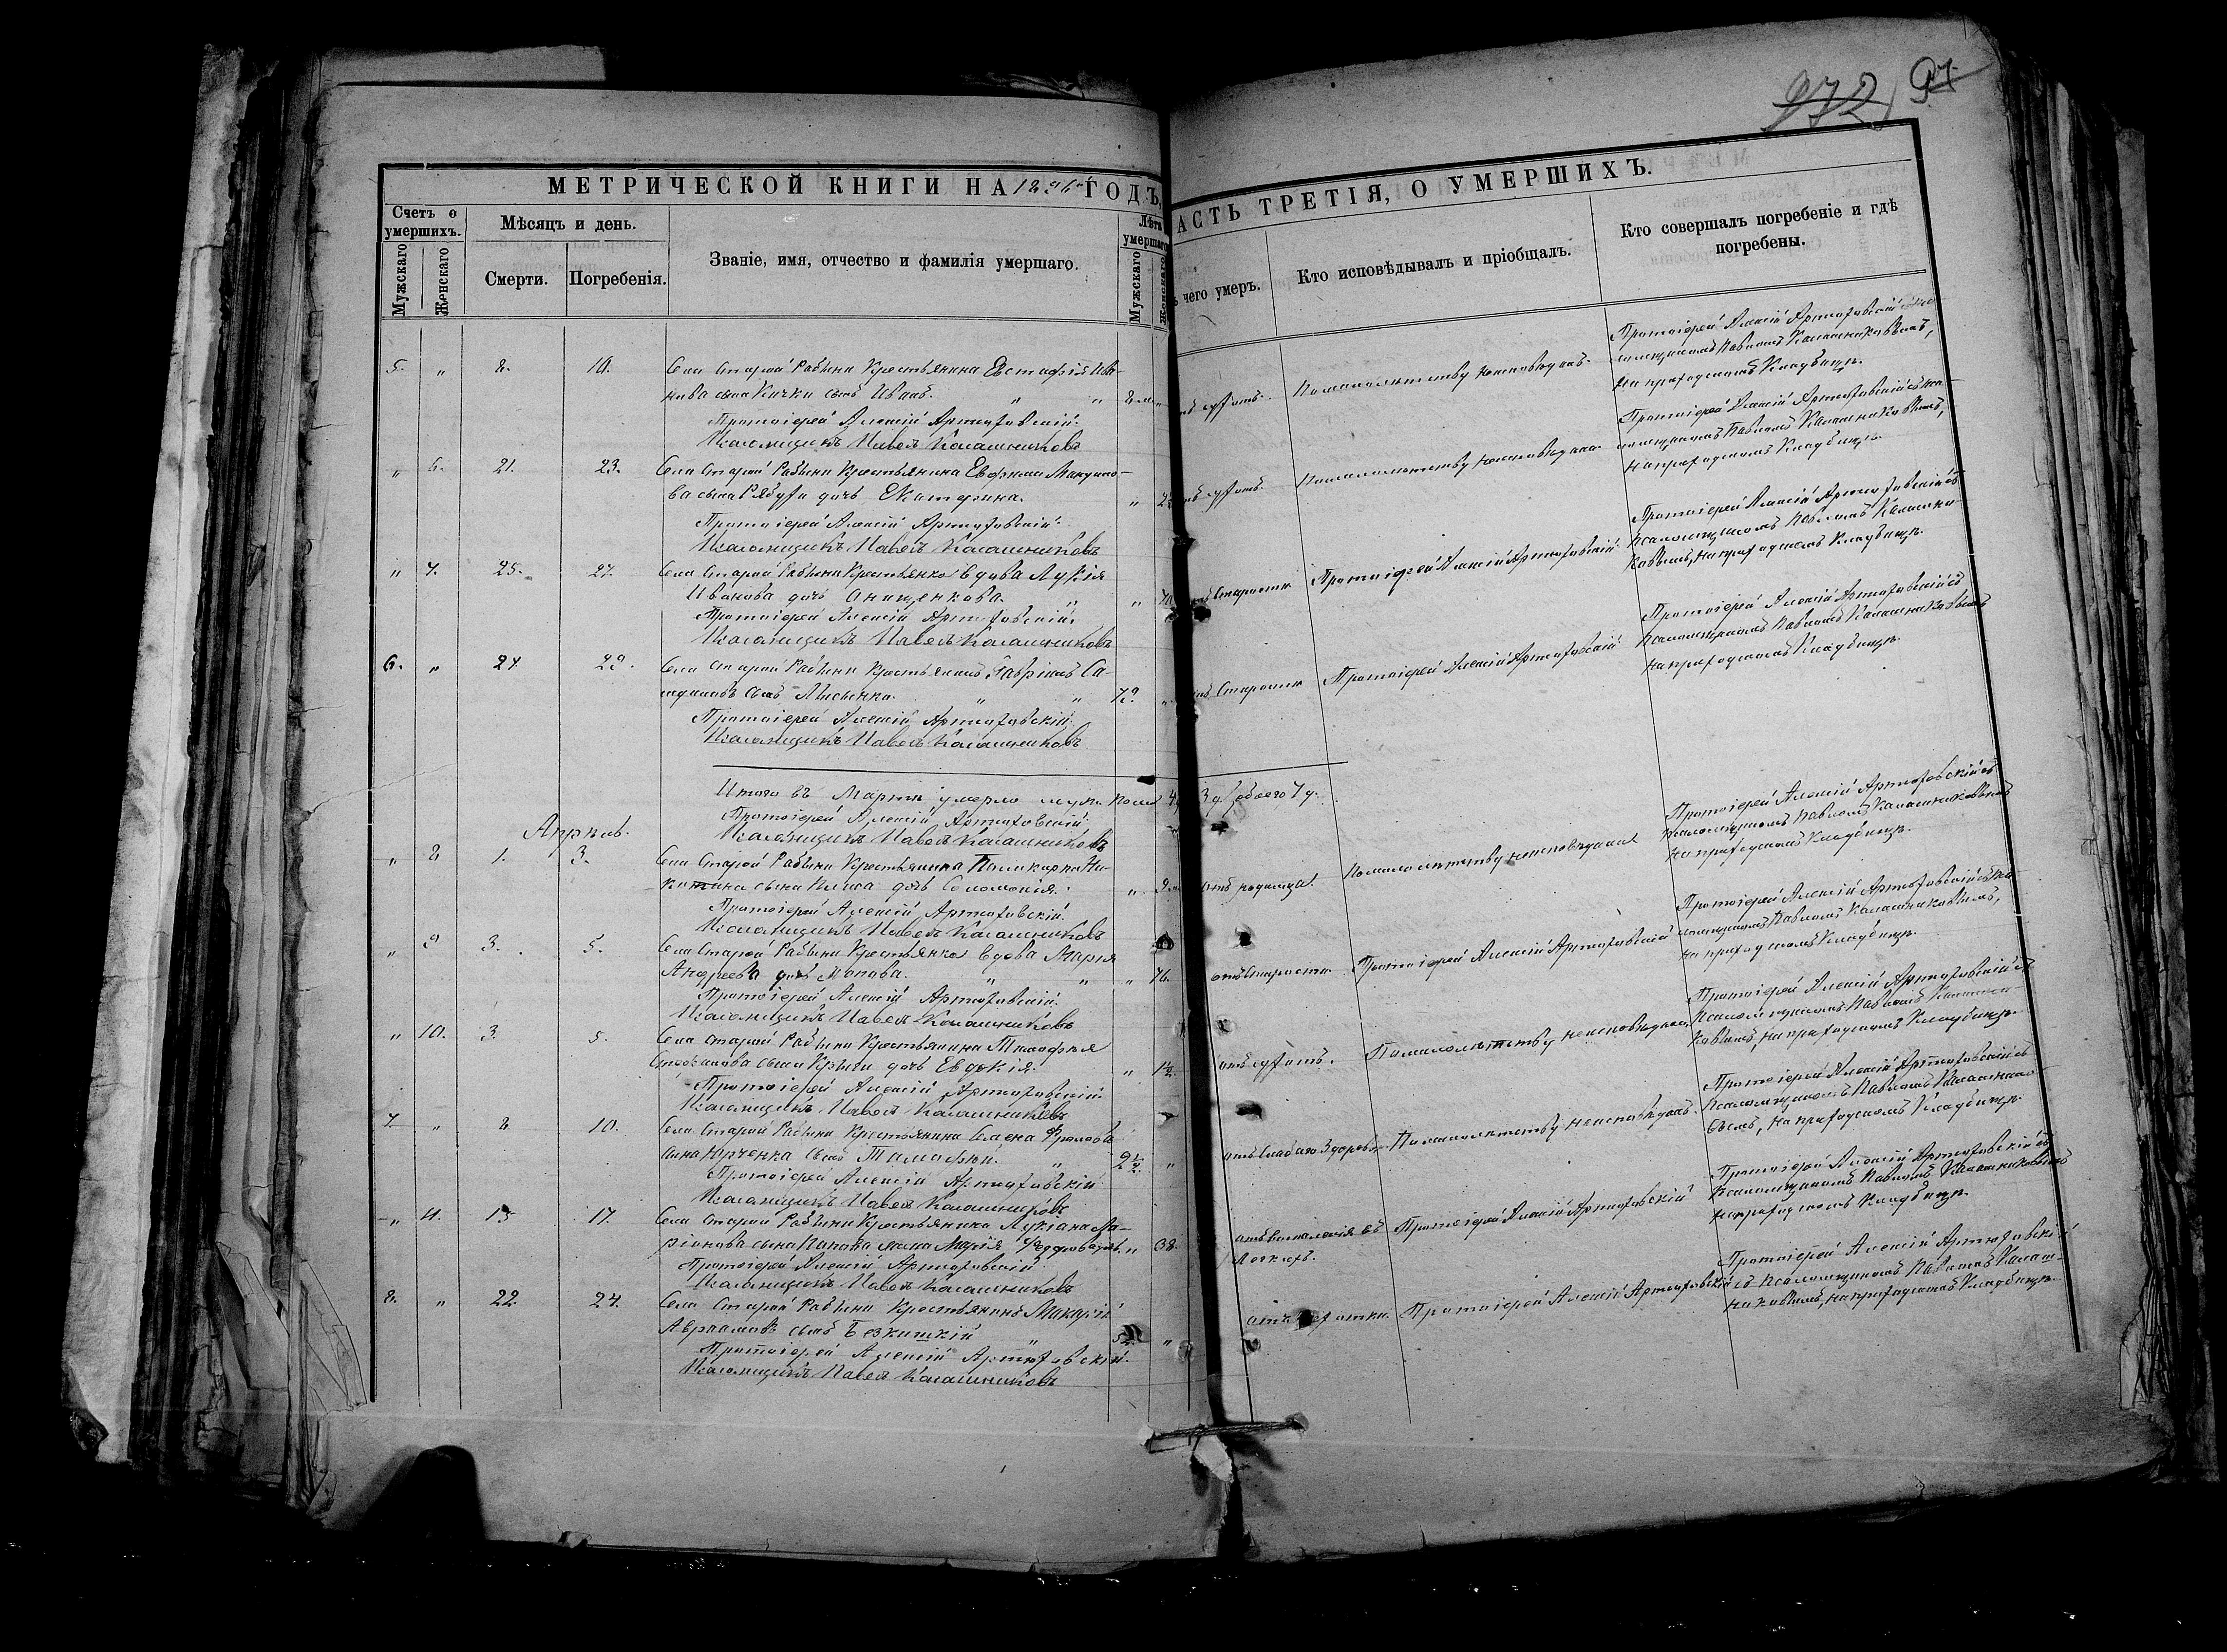 972 97
МЕТРИЧЕСКОЙ КНИГИ НА 1896й ГОДЪ,
АСТЬ ТРЕТІЯ, О УМЕРШИХЪ.
Счетъ о умершихъ.
Мѣсяцъ и день.
Званіе, имя, отчество и фамилія умершаго.
Лѣта умершаго
Мужскаго
Женскаго
Смерти.
Погребенія.
Мужскаго
Женскаго
ъ чего умеръ.
Кто исповѣдывалъ и пріобщалъ.
Кто совершалъ погребеніе и гдѣ
погребены.
5. " 8. 10. Села Старой Рабыни Крестьянина Евстафія Ива-
нова сына сынъ Иванъ. " " 8 м. "
Протоіерей Алексій Артюховскій.
Псаломщикъ Павелъ Калашниковъ
По малолѣтству неисповѣданъ.
Протоіерей Алексій Артюховскій съ пса-
ломщикомъ Павломъ Калашниковымъ,
на приходскомъ кладбищѣ.
" 6. 21. 23. Села Старой Рабыни Крестьянина Евфима
сына Рябухи дочь Екатерина. "
Протоіерей Алексій Артюховскій.
Псаломщикъ Павелъ Калашниковъ
По малолѣтству неисповѣдана.
Протоіерей Алексій Артюховскій съ пса-
ломщикомъ Павломъ Калашниковымъ,
на приходскомъ кладбищѣ.
" 7. 25. 27. Села Старой Рабыни Крестьянка вдова Лукія
Иванова дочь Онищенкова. " "
Протоіерей Алексій Артюховскій.
Псаломщикъ Павелъ Калашниковъ
Старости
Протоіерей Алексій Артюховскій.
Протоіерей Алексій Артюховскій съ
псаломщикомъ Павломъ Калашни-
ковымъ, на приходскомъ кладбищѣ.
6. " 27. 29. Села Старой Рабыни Крестьянинъ Гавріилъ Са-
сынъ Лысенко. " " 72. "
Протоіерей Алексій Артюховскій.
Псаломщикъ Павелъ Калашниковъ
Старости
Протоіерей Алексій Артюховскій
Протоіерей Алексій Артюховскій съ
псаломщикомъ Павломъ Калашниковымъ
на приходскомъ кладбищѣ.
Итого въ Мартѣ умерло муж. пола 4, 3 обоего 7 д.
Протоіерей Алексій Артюховскій.
Псаломщикъ Павелъ Калашниковъ
Апрѣль.
" 8 1. 3. Села Старой Рабыни Крестьянина Поликарпа Ни-
китина сына дочь Соломонія. "
Протоіерей Алексій Артюховскій.
Псаломщикъ Павелъ Калашниковъ
отъ родимца.
По малолѣтству неисповѣдана
Протоіерей Алексій Артюховскій съ
псаломщикомъ Павломъ Калашниковымъ
на приходскомъ кладбищѣ.
" 9 3. 5. Села Старой Рабыни Крестьянка вдова Марія
Андреева дочь Попова. " " " 76.
Протоіерей Алексій Артюховскій.
Псаломщикъ Павелъ Калашниковъ
отъ Старости.
Протоіерей Алексій Артюховскій
Протоіерей Алексій Артюховскій съ пса-
ломщикомъ Павломъ Калашниковымъ,
на приходскомъ кладбищѣ.
" 10. 3. 5. Села Старой Рабыни Крестьянина Тимофея
Стефанова сына дочь Евдокія. " 1½
Протоіерей Алексій Артюховскій.
Псаломщикъ Павелъ Калашниковъ
По малолѣтству неисповѣдана
Протоіерей Алексій Артюховскій съ
псаломщикомъ Павломъ Калашни-
ковымъ, на приходскомъ кладбищѣ.
7. " 8 10. Села Старой Рабыни Крестьянина Семена Фролова
сына Юрченка сынъ Тимофей. "
Протоіерей Алексій Артюховскій
Псаломщикъ Павелъ Калашниковъ
отъ Слабаго Здоровья
По малолѣтству неисповѣданъ.
Протоіерей Алексій Артюховскій съ
псаломщикомъ Павломъ Калашнико-
вымъ, на приходскомъ кладбищѣ.
" 11. 15 17. Села Старой Рабыни Крестьянина Лукіана Ма-
ріонова сына Попова жена Марія Феодорова дочь. " 38.
Протоіерей Алексій Артюховскій
Псаломщикъ Павелъ Калашниковъ
отъ воспаленія въ
легкихъ.
Протоіерей Алексій Артюховскій
Протоіерей Алексій Артюховскій съ
псаломщикомъ Павломъ Калашниковымъ
на приходскомъ кладбищѣ.
8. " 22. 24. Села Старой Рабыни Крестьянинъ Макарій
Авраамовъ сынъ Безкишкій " "
Протоіерей Алексій Артюховскій.
Псаломщикъ Павелъ Калашниковъ
отъ чахотки.
Протоіерей Алексій Артюховскій
Протоіерей Алексій Артюховскій
съ псаломщикомъ Павломъ Калаш-
никовымъ, на приходскомъ кладбищѣ.